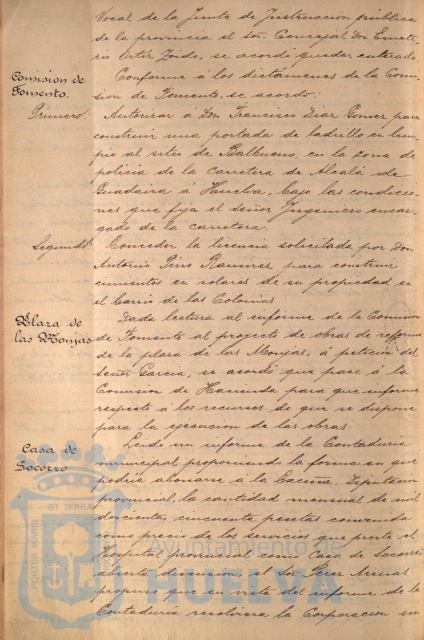 Vocal de la Junta de Instrucción pública
de la provincia el señor Concejal Don Emete-
rio Ortiz Zoido, se acordó quedar enterado.
Comision de
Fomento.
Conforme á los dictámenes de la Comi-
sion de Fomento, se acordó:
Primero:
Autorizar á Don Francisco Diaz Gomez para
construir una portada de ladrillo en lim-
pio al sitio de Balbueno, en la zona de
policia de la carretera de Alcalá de
Guadaira á Huelva, bajo las condicio-
nes que fija el señor Ingeniero encar-
gado de la carretera.
Segundo:
Conceder la licencia solicitada por Don
Antonio Pino Ramirez para construir
cimientos en solares de su propiedad en
el barrio de las Colonias
Plaza de
las Monjas
Dada lectura al informe de la Comision
de Fomento al proyecto de obras de reforma
de la plaza de las Monjas, á peticion del
señor Garcia, se acordó que pase á la
Comision de Hacienda para que informe
respecto á los recursos de que se dispone
para la ejecucion de las obras.
Casa de
Socorro
Leido un informe de la Contaduria
municipal proponiendo la forma en que
podria abonarse á la Excma. Diputacion
provincial, la cantidad mensual de mil
doscientas cincuenta pesetas convenida
como precio de los servicios que presta el
Hospital provincial como Casa de Socorro
abierta discusion, el Sor Perez Arenas
propuso que en vista del informe de la
Contaduria resolviera la Corporacion sin
PORTUS MARIS ET TERRAE
Ayuntamiento de
HUELVA